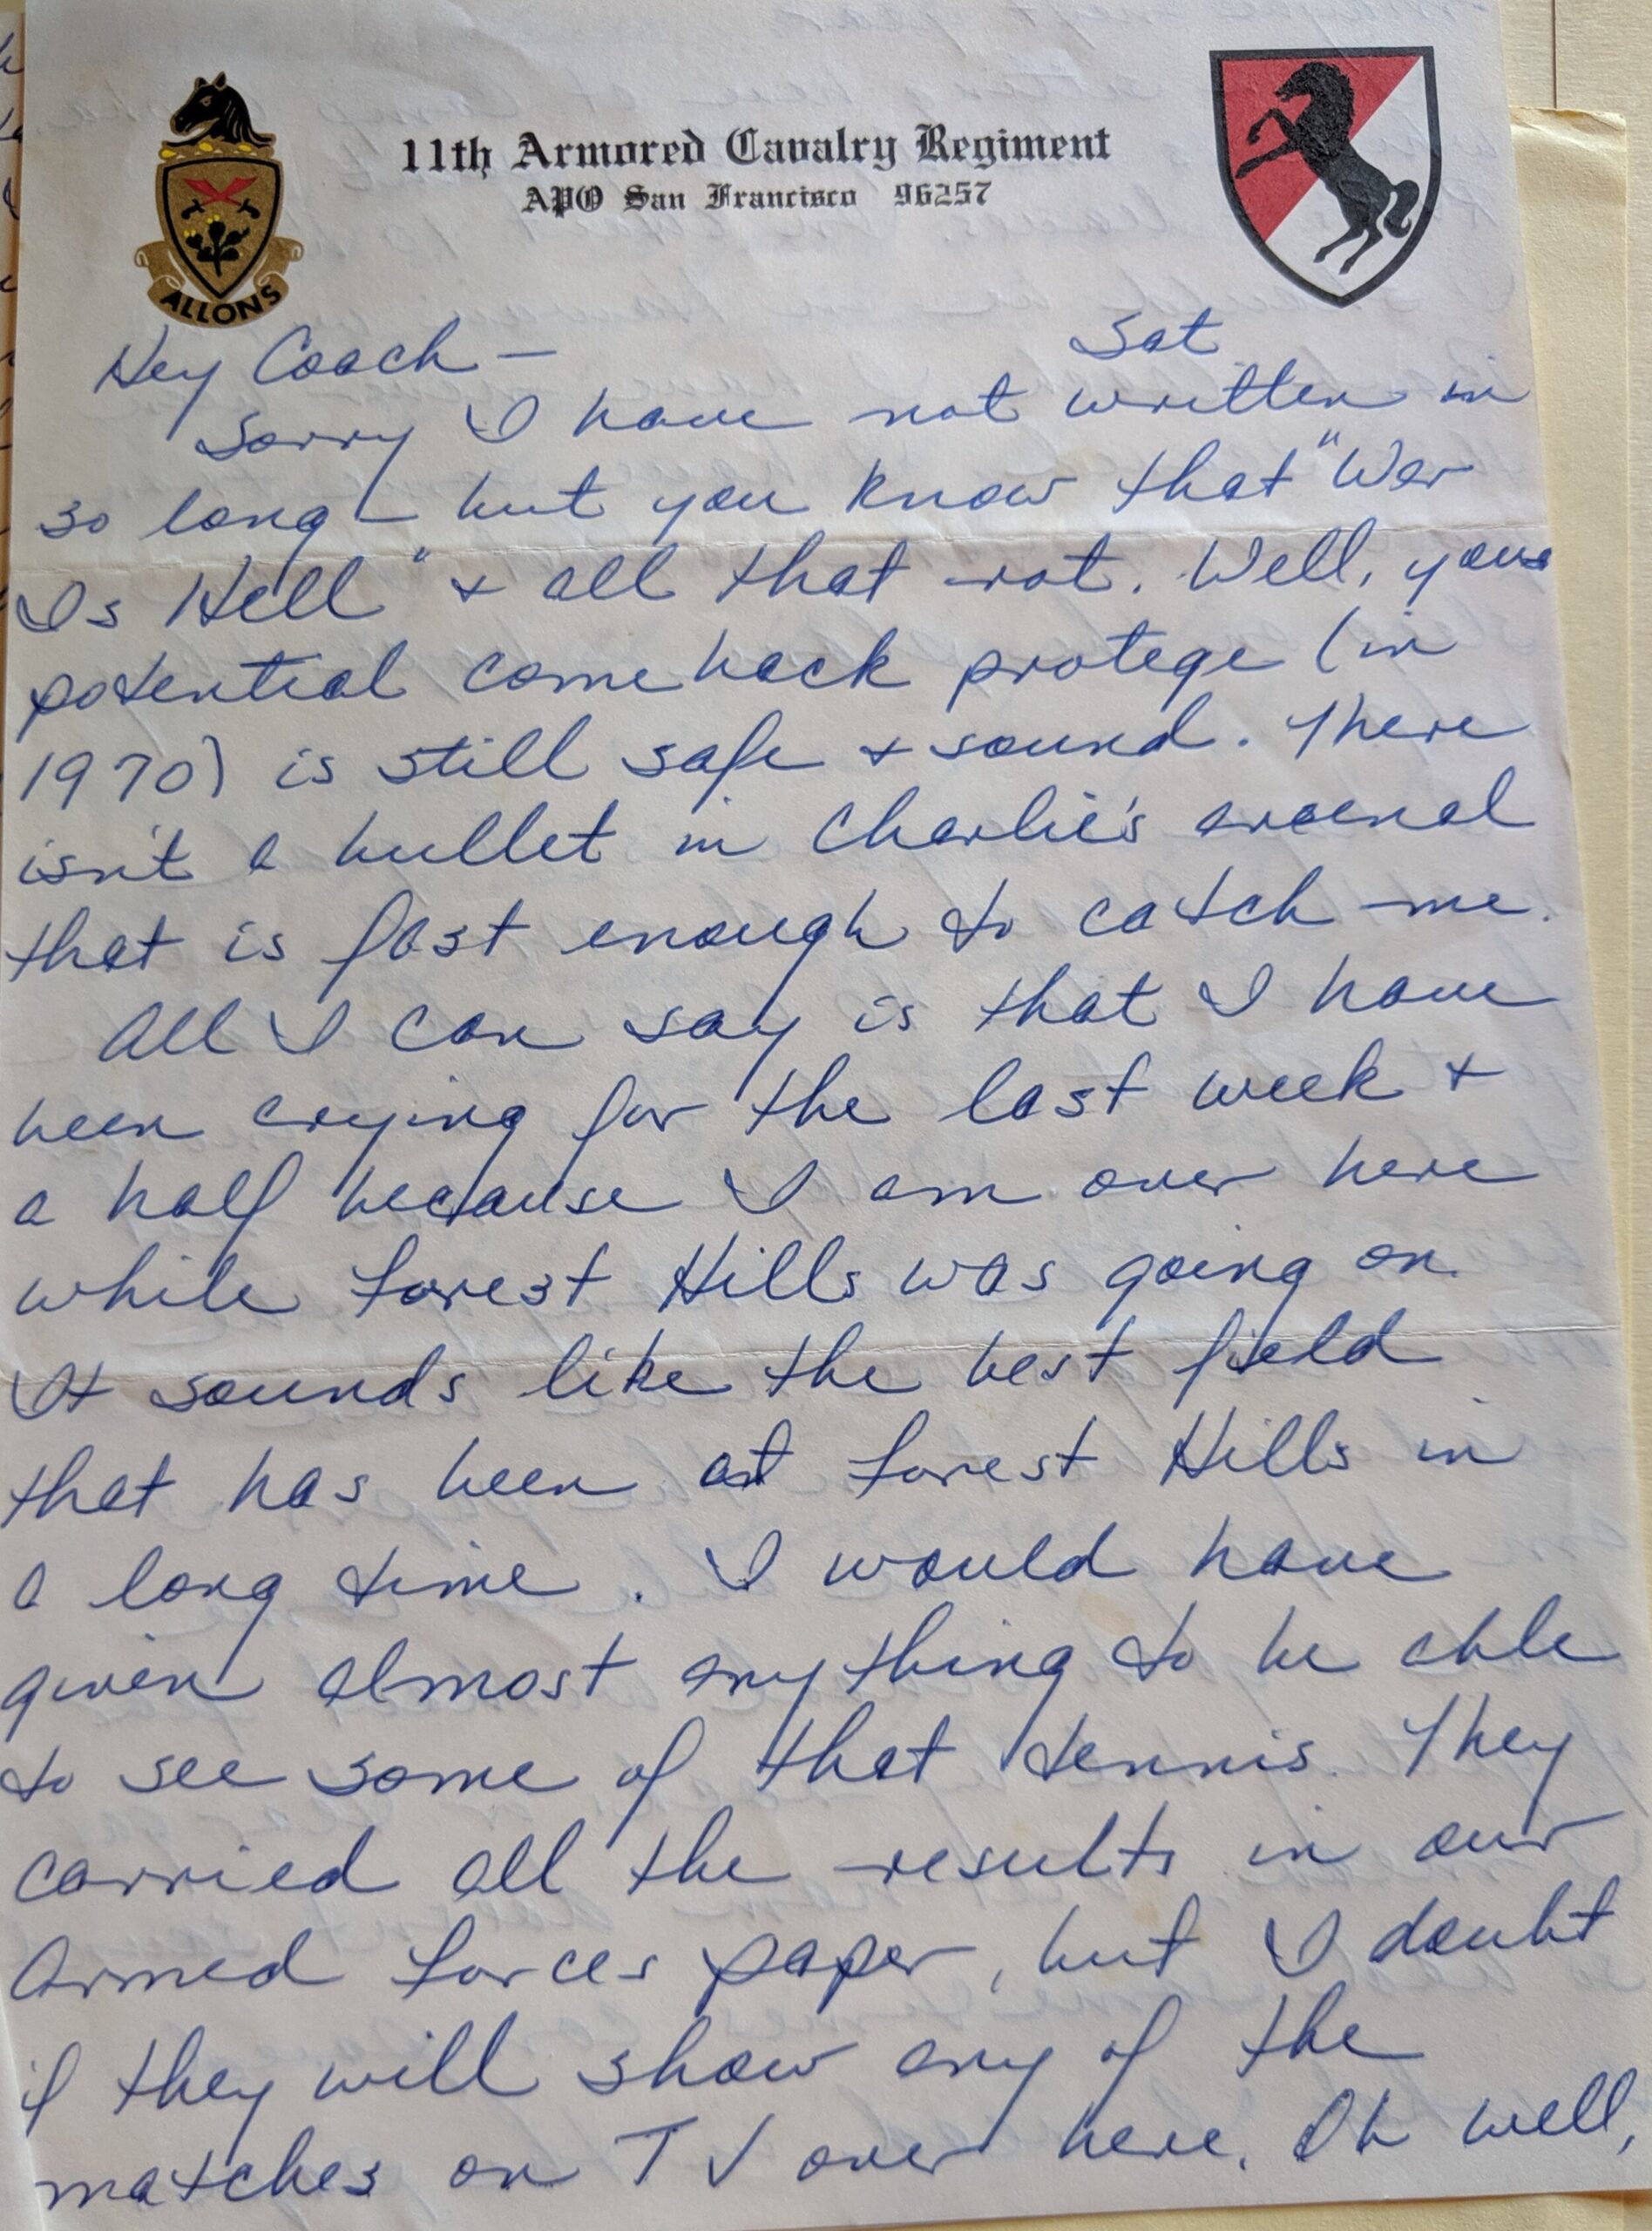 11th Armored Cavalry Regiment
APO San Francisco 96257
ALLONS
Sat
Hey Coach –
Sorry I have not written in
so long – but you know that "War
Is Hell" + all that rot. Well, your
potential comeback protege (in
1970) is still safe + sound. There
isn't a bullet in Charlie's arsenal
that is fast enough to catch me.
All I can say is that I have
been crying for the last week +
a half because I am over here
while Forest Hills was going on.
It sounds like the best field
that has been at Forest Hills in
a long time. I would have
given almost anything to be able
to see some of that tennis. They
carried all the results in our
Armed Forces paper, but I doubt
if they will show any of the
matches on TV over here. Oh well,